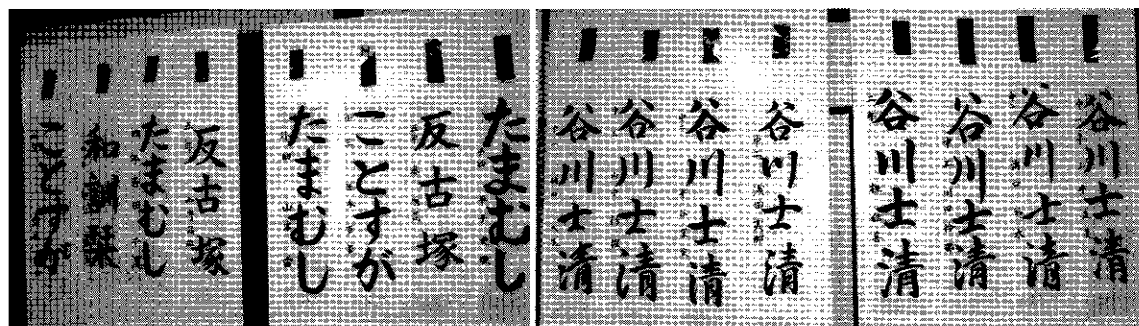 谷川士清
谷川士清
谷川士清
谷川士清
谷川士清
谷川士清
谷川士清
谷川士清
たまむし
反古塚
ことすが
たまむし
反古塚
たまむし
和訓栞
ことすが